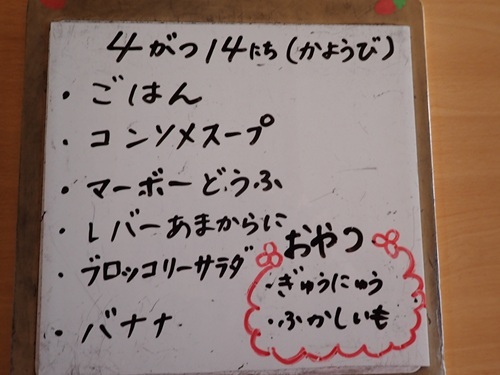 4がつ14にち(かようび)
・ごはん
・コンソメスープ
・マーボーどうふ
・レバーあまからに
・ブロッコリーサラダ
・バナナ
おやつ
・ぎゅうにゅう
・ふかしいも